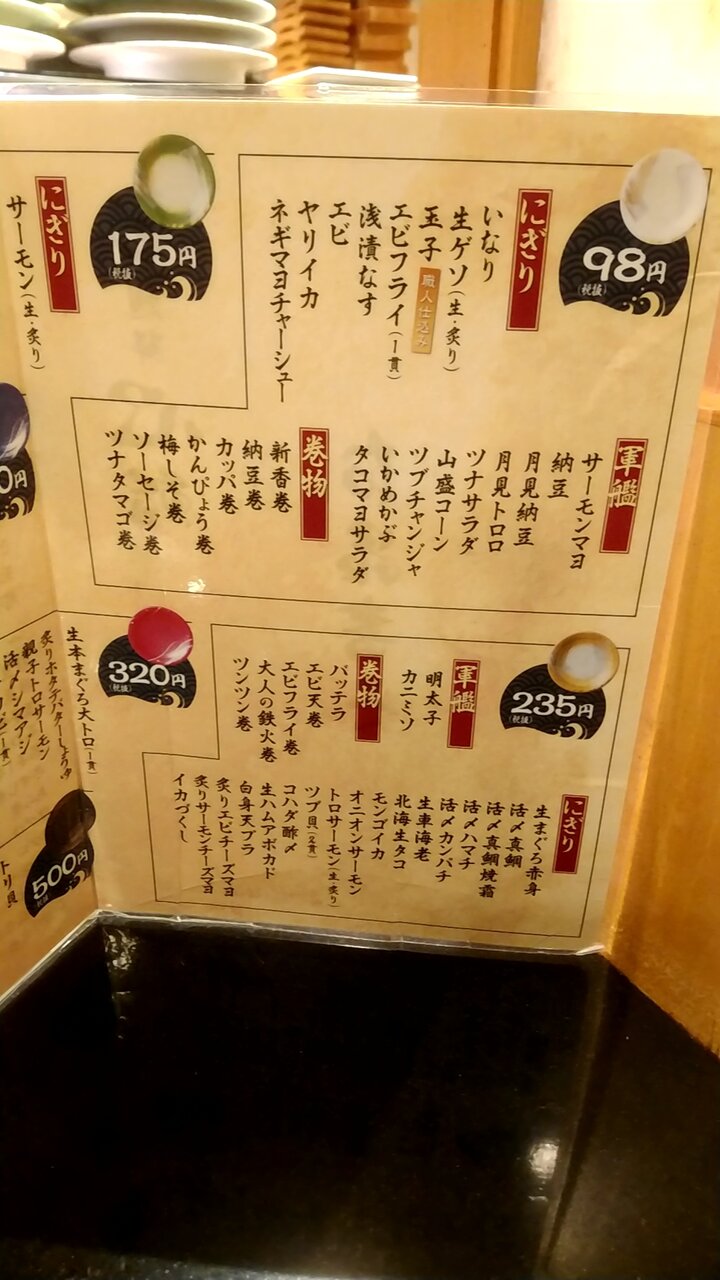 98円
(税抜)
にぎり
いなり
生ゲソ(生・炙り)
玉子 職人仕込み
エビフライ(一貫)
浅漬なす
エビ
ヤリイカ
ネギマヨチャーシュー
軍艦
サーモンマヨ
納豆
月見納豆
月見トロロ
ツナサラダ
山盛コーン
ツブチャンジャ
いかめかぶ
タコマヨサラダ
巻物
新香巻
納豆巻
カッパ巻
かんぴょう巻
梅しそ巻
ソーセージ巻
ツナタマゴ巻
175円
(税抜)
にぎり
サーモン(生・炙り)
0円
235円
(税抜)
軍艦
明太子
カニミソ
巻物
バッテラ
エビ天巻
エビフライ巻
大人の鉄火巻
ツンツン巻
にぎり
生まぐろ赤身
活〆真鯛
活〆真鯛焼霜
活〆ハマチ
活〆カンパチ
生車海老
北海生タコ
モンゴイカ
オニオンサーモン
トロサーモン(生・炙り)
ツブ貝(2貫)
コハダ酢〆
生ハムアボカド
白身天ブラ
炙りエビチーズマヨ
炙りサーモンチーズマヨ
イカづくし
320円
(税抜)
生本まぐろ大トロ(一貫)
炙りホタテバターしょうゆ
親子トロサーモン
活〆シマアジ
500円
(税抜)
トリ貝